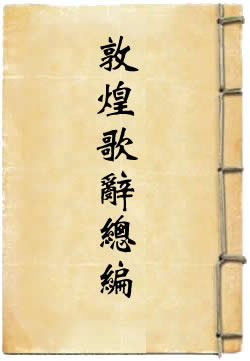 敦煌歌辭總編